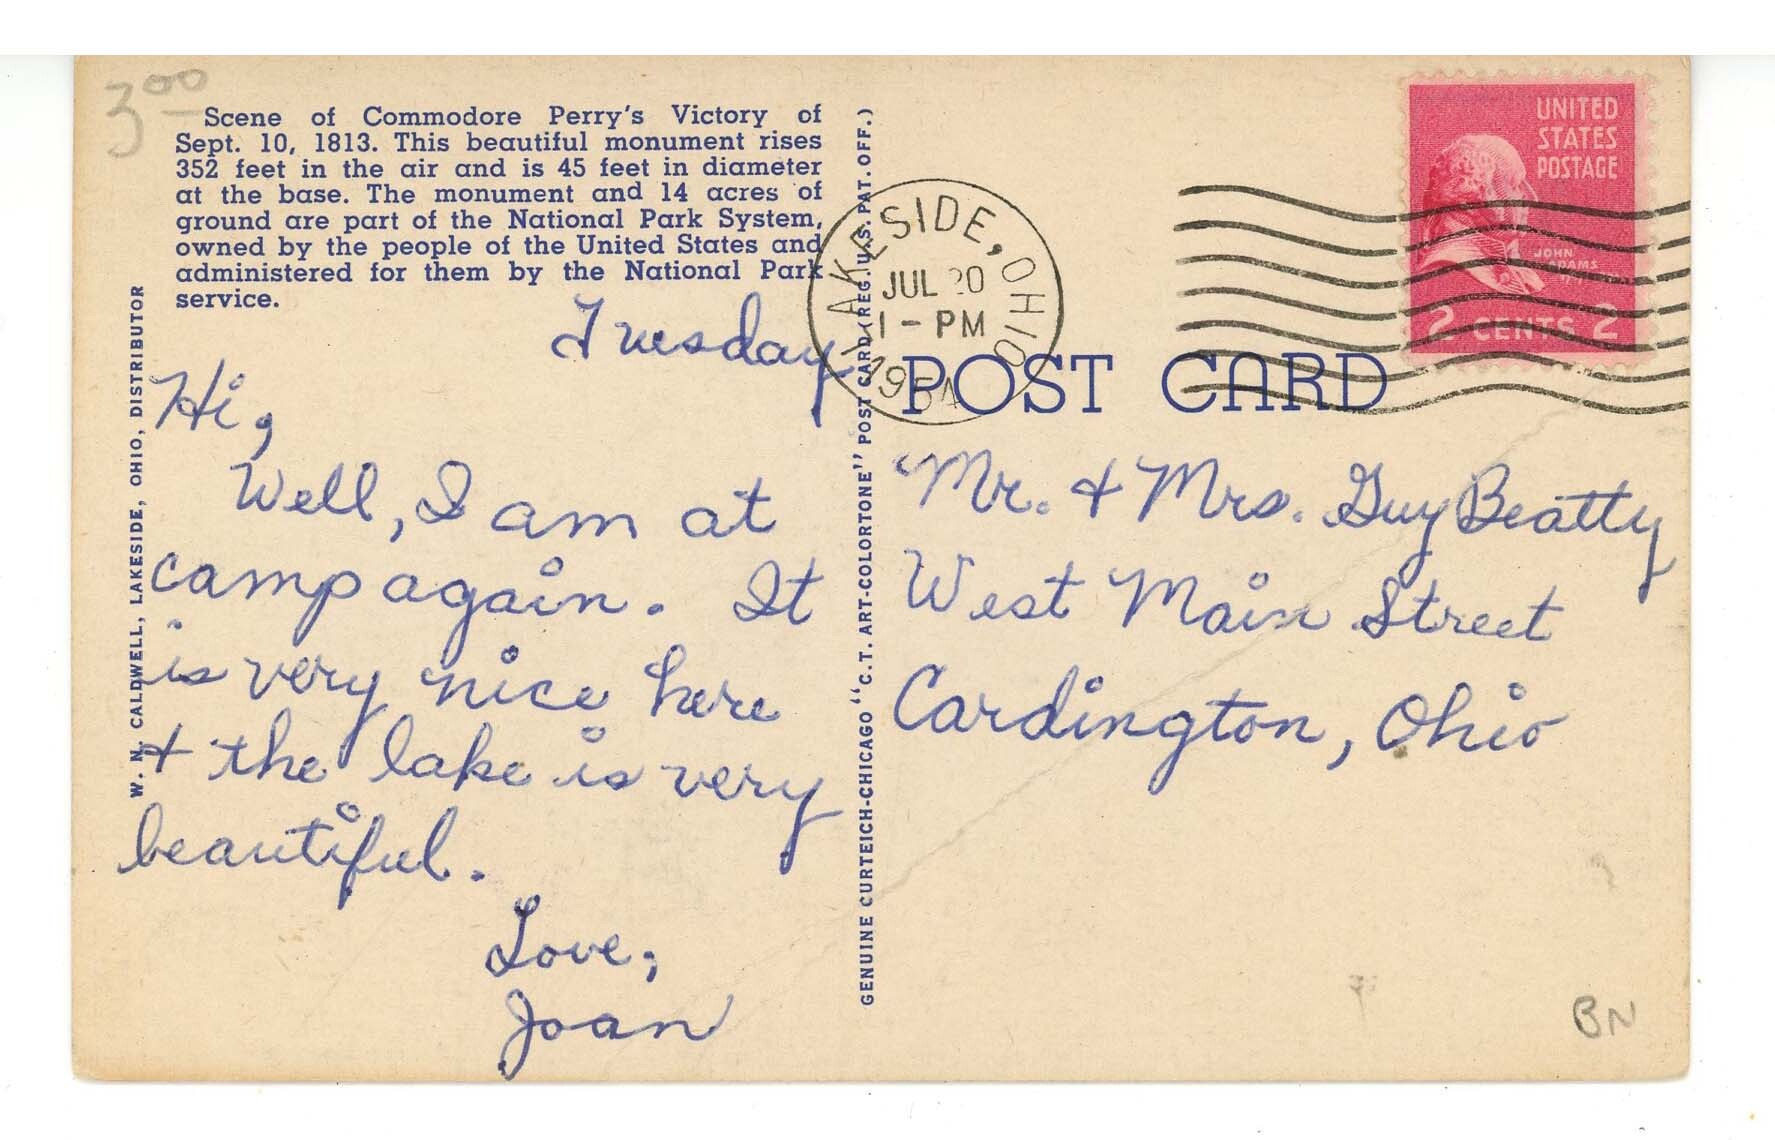 3.00
Scene of Commodore Perry's Victory of
Sept. 10, 1813. This beautiful monument rises
352 feet in the air and is 45 feet in diameter
at the base. The monument and 14 acres of
ground are part of the National Park System,
owned by the people of the United States and
administered for them by the National Park
service.
W. N. CALDWELL, LAKESIDE, OHIO, DISTRIBUTOR
Tuesday
Hi,
Well, I am at
camp again. It
is very nice here
+ the lake is very
beautiful.
Love,
Joan
GENUINE CURTEICH-CHICAGO "C.T. ART-COLORTONE" POST CARD (REG. U.S. PAT. OFF.)
LAKESIDE, OHIO
JUL 20
1-PM
1954
UNITED
STATES
POSTAGE
JOHN
ADAMS
2 CENTS 2
POST CARD
Mr. + Mrs. Guy Beatty
West Main Street
Cardington, Ohio
BN